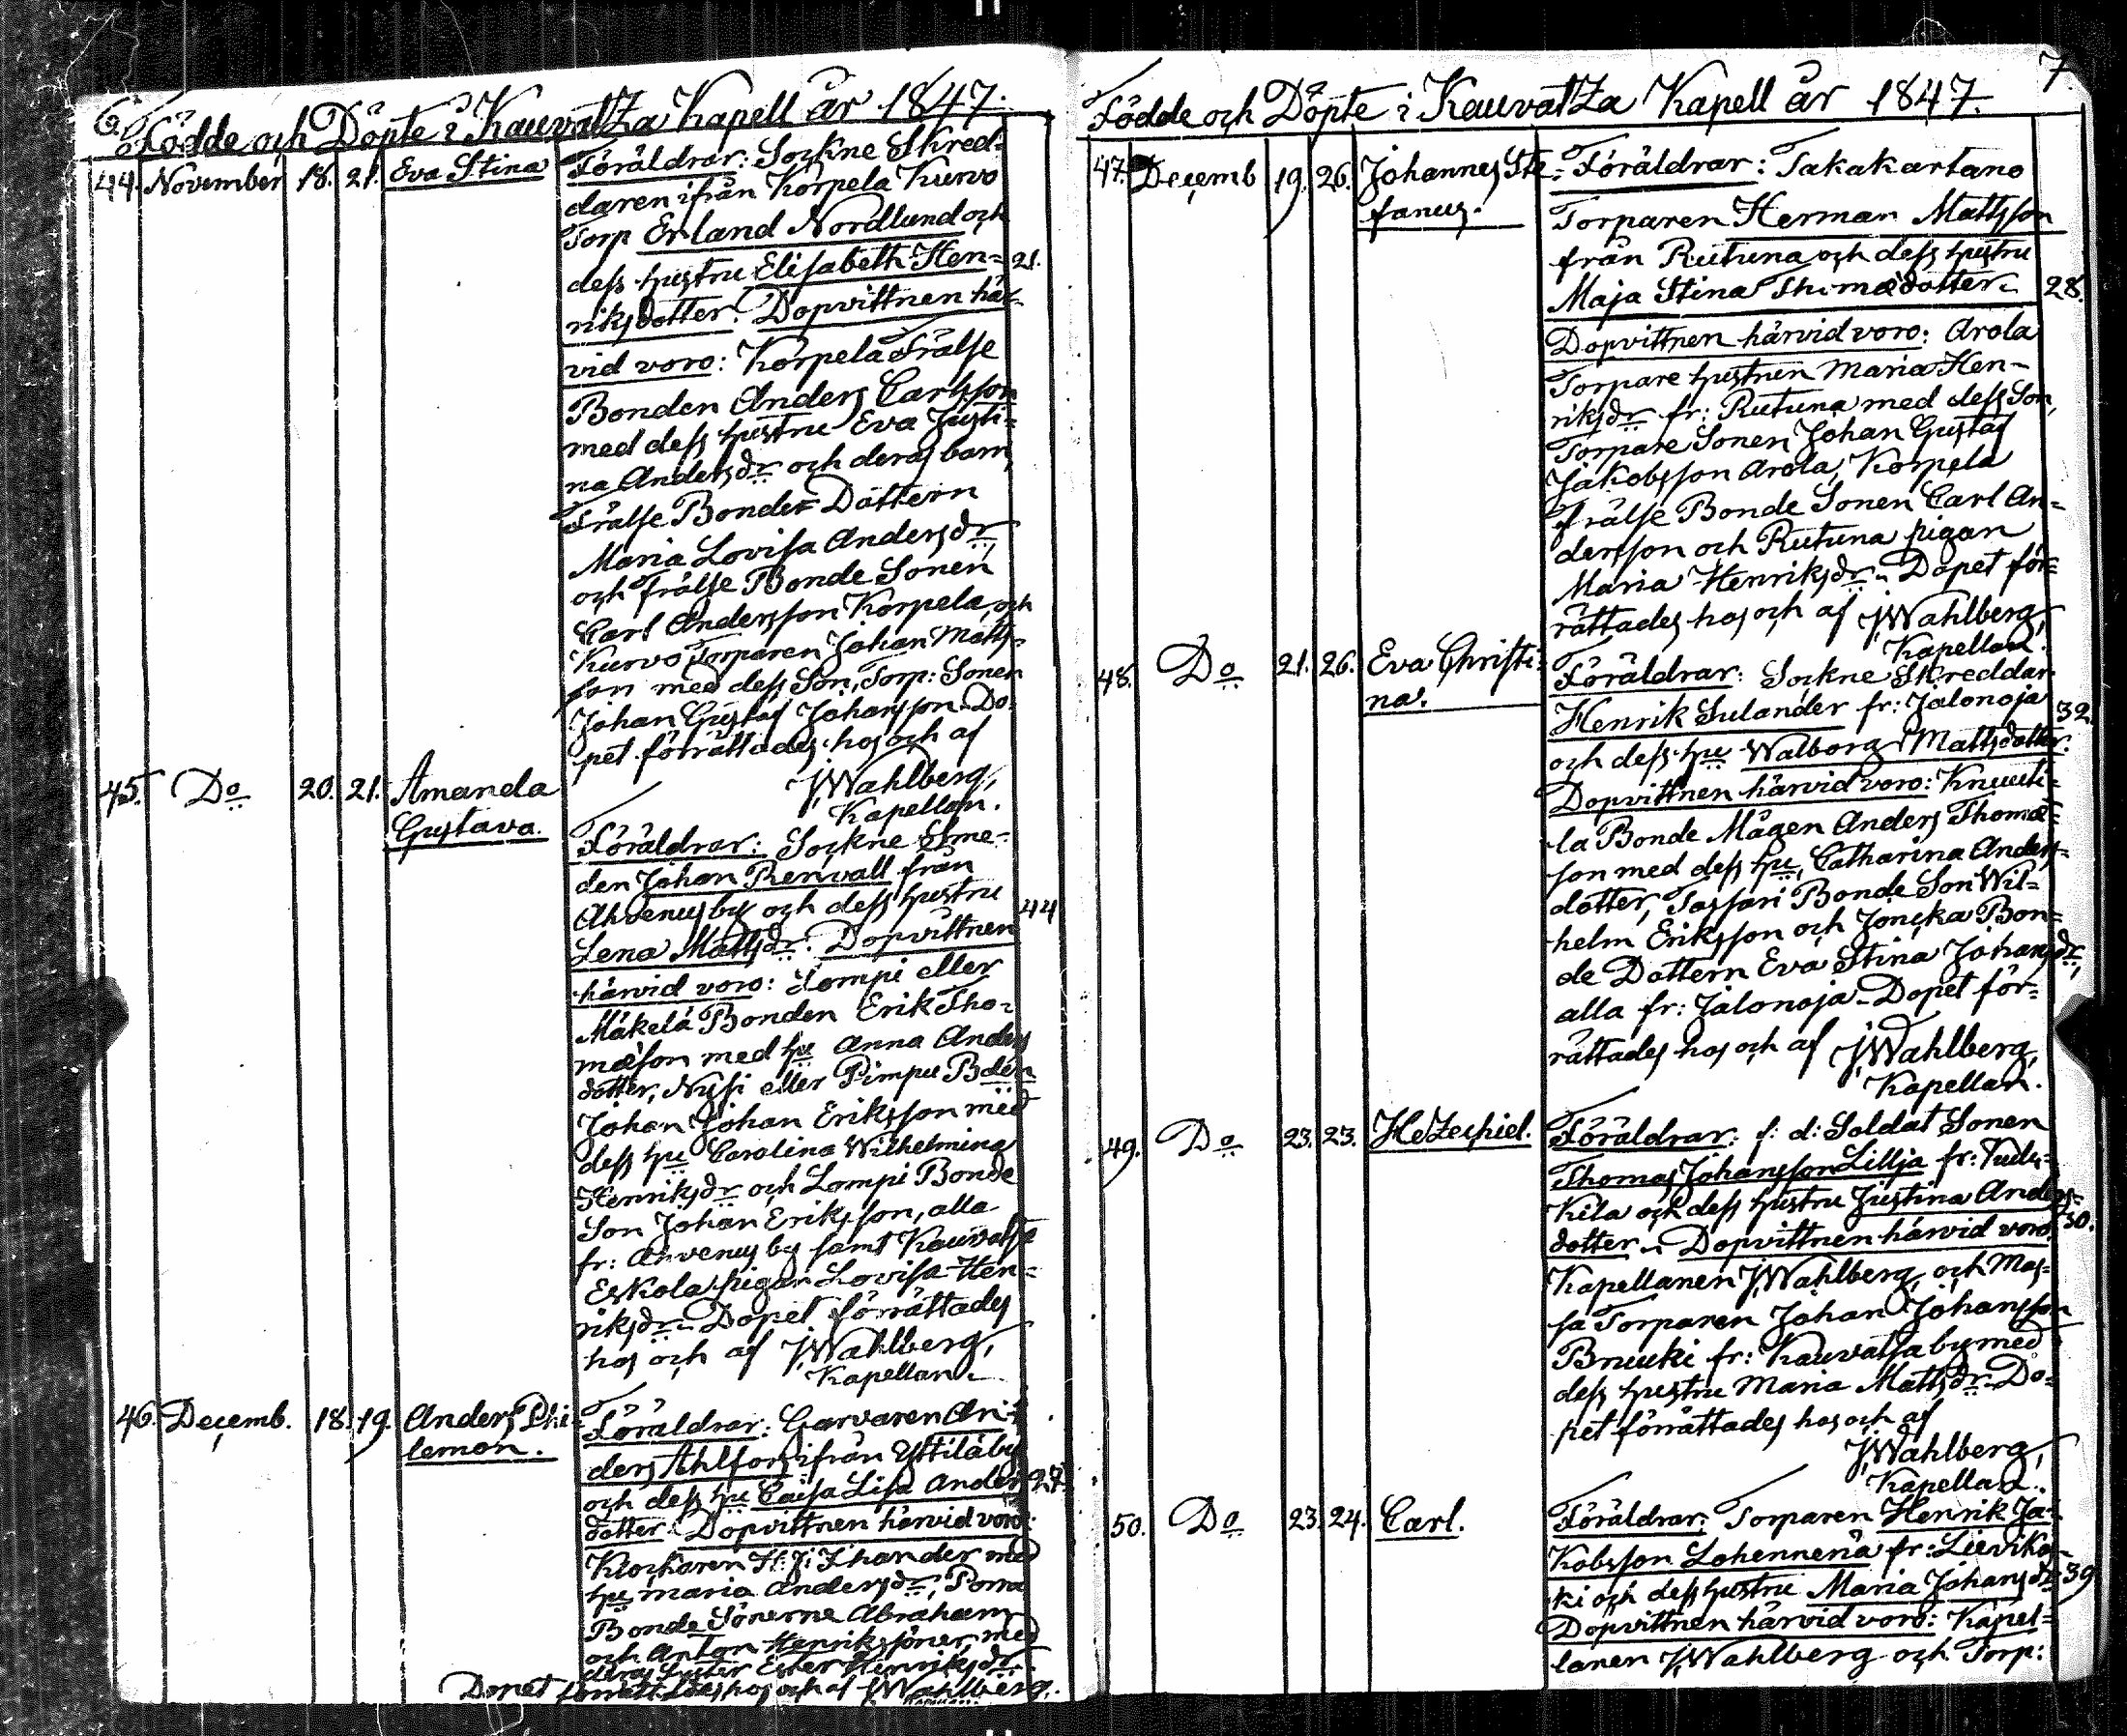 6.
Födde och Döpte i KauvatZa Kapell år 1847.
44. November 18. 21. Eva Stina
Föräldrar: Sockne Skred-
daren ifrån Korpela Kurvo
Torp Erland Nordlund och
dess hustru Elisabeth Hen= 21.
riksdotter. Dopvittnen här-
vid voro: Korpela Frälse
Bonden Anders Carlsson
med dess hustru Eva Justi-
na Andersdr och deras barn,
Frälse Bonde Dottern
Maria Lovisa Andersdr
och Frälse Bonde Sonen
Carl Andersson Korpela, och
Kurvo Torparen Johan Matts-
son med dess Son, Torp: Sonen
Johan Gustaf Johansson. Do-
pet förrättades hos och af
JWahlberg,
Kapellan.
45. Do 20. 21. Amanda
Gustava.
Föräldrar: Sockne Sme-
den Johan Renvall från
Ahvenus by och dess hustru 44
Lena Mattsdr. Dopvittnen
härvid voro: Lompi eller
Mäkelä Bonden Erik Tho-
mæson med hu Anna Anders
dotter, Nysi eller Pimpu Bden
Johan Johan Eriksson med
dess hu Carolina Wilhelmina
Henriksdr och Lompi Bonde
Son Johan Eriksson, alla
fr: Ahvenus by samt Kauvatsa
Eskola pigan Lovisa Hen=
riksdr. Dopet förrättades
hos och af JWahlberg,
Kapellan.
46. Decemb. 18. 19. Anders Phi-
lemon.
Föräldrar: Garvaren An-
ders Ahlfors ifrån Yttilä by
och dess hu Caisa Lisa Anders 27.
dotter. Dopvittnen härvid voro:
Klockaren H: J: Zhander med
hu Maria Andersdr,
Bonde Sönerne Abraham
och Anton Henrikssöner, med
deras Syster Ester Henriksdr.
Dopet förrättades hos och af JWahlberg.
7
Födde och Döpte i KauvatZa Kapell år 1847.
47. Decemb 19. 26. Johannes Ste-
fanus.
Föräldrar: Takakartano
Torparen Herman Mattsson
från Rutuna och dess hustru
Maja Stina Thomædotter. 28.
Dopvittnen härvid voro: Arola
Torpare hustrun Maria Hen-
riksdr fr: Rutuna med dess Son,
Torpare Sonen Johan Gustaf
Jakobsson Arola, Korpela
Frälse Bonde Sonen Carl An=
dersson och Rutuna pigan
Maria Henriksdr. Dopet för=
rättades hos och af JWahlberg,
Kapellan.
48. Do 21. 26. Eva Christi-
na.
Föräldrar: Sockne Skreddar
Henrik Sulander fr: Jalonoja 32.
och dess hu Walborg Mattsdotter.
Dopvittnen härvid voro: Knuuti-
la Bonde Mågen Anders Thomæ-
son med dess hu, Catharina Anders=
dotter, Tassari Bonde Son Wil=
helm Eriksson och Joncka Bon=
de Dottern Eva Stina Johansdr,
alla fr: Jalonoja. Dopet för=
rättades hos och af JWahlberg,
Kapellan.
49. Do 23. 23. HeZechiel.
Föräldrar: f: d: Soldat Sonen
Thomas Johansson Lillja fr: Pudu-
kila och dess hustru Justina Anders= 30.
dotter. Dopvittnen härvid voro:
Kapellanen JWahlberg, och Mas-
sa Torparen Johan Johansson
Bruuki fr: Kauvatsa by med
dess hustru Maria Mattsdr. Do=
pet förrättades hos och af
JWahlberg,
Kapellan.
50. Do 23. 24. Carl.
Föräldrar: Torparen Henrik Ja-
kobsson Lohennenä fr: Lieviko-
ski och dess hustru Maria Johansdr 39
Dopvittnen härvid voro: Kapel=
lanen JWahlberg och Torp: